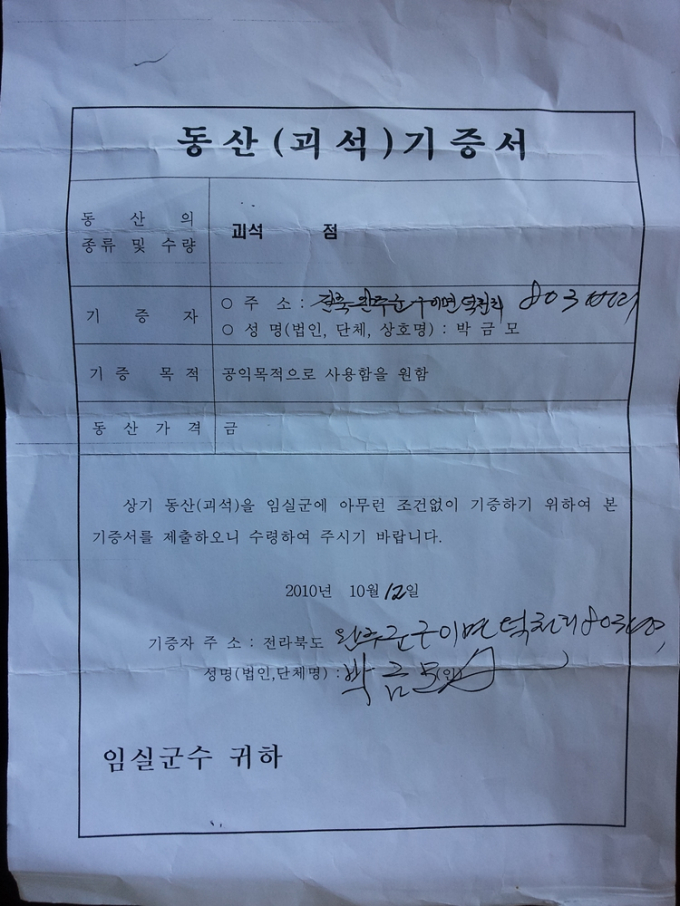 동산(괴석)기증서
동 산 의
종류 및 수량
괴석 점
기 증 자
○ 주 소 : 전북 완주군 구이면 덕천리 803번지
○ 성 명(법인, 단체, 상호명) : 박 금 모
기 증 목 적
공익목적으로 사용함을 원함
동 산 가 격
금
상기 동산(괴석)을 임실군에 아무런 조건없이 기증하기 위하여 본
기증서를 제출하오니 수령하여 주시기 바랍니다.
2010년 10월 12일
기증자 주 소 : 전라북도 완주군 구이면 덕천리 803
성명(법인,단체명) : 박 금 모 (인)
임실군수 귀하